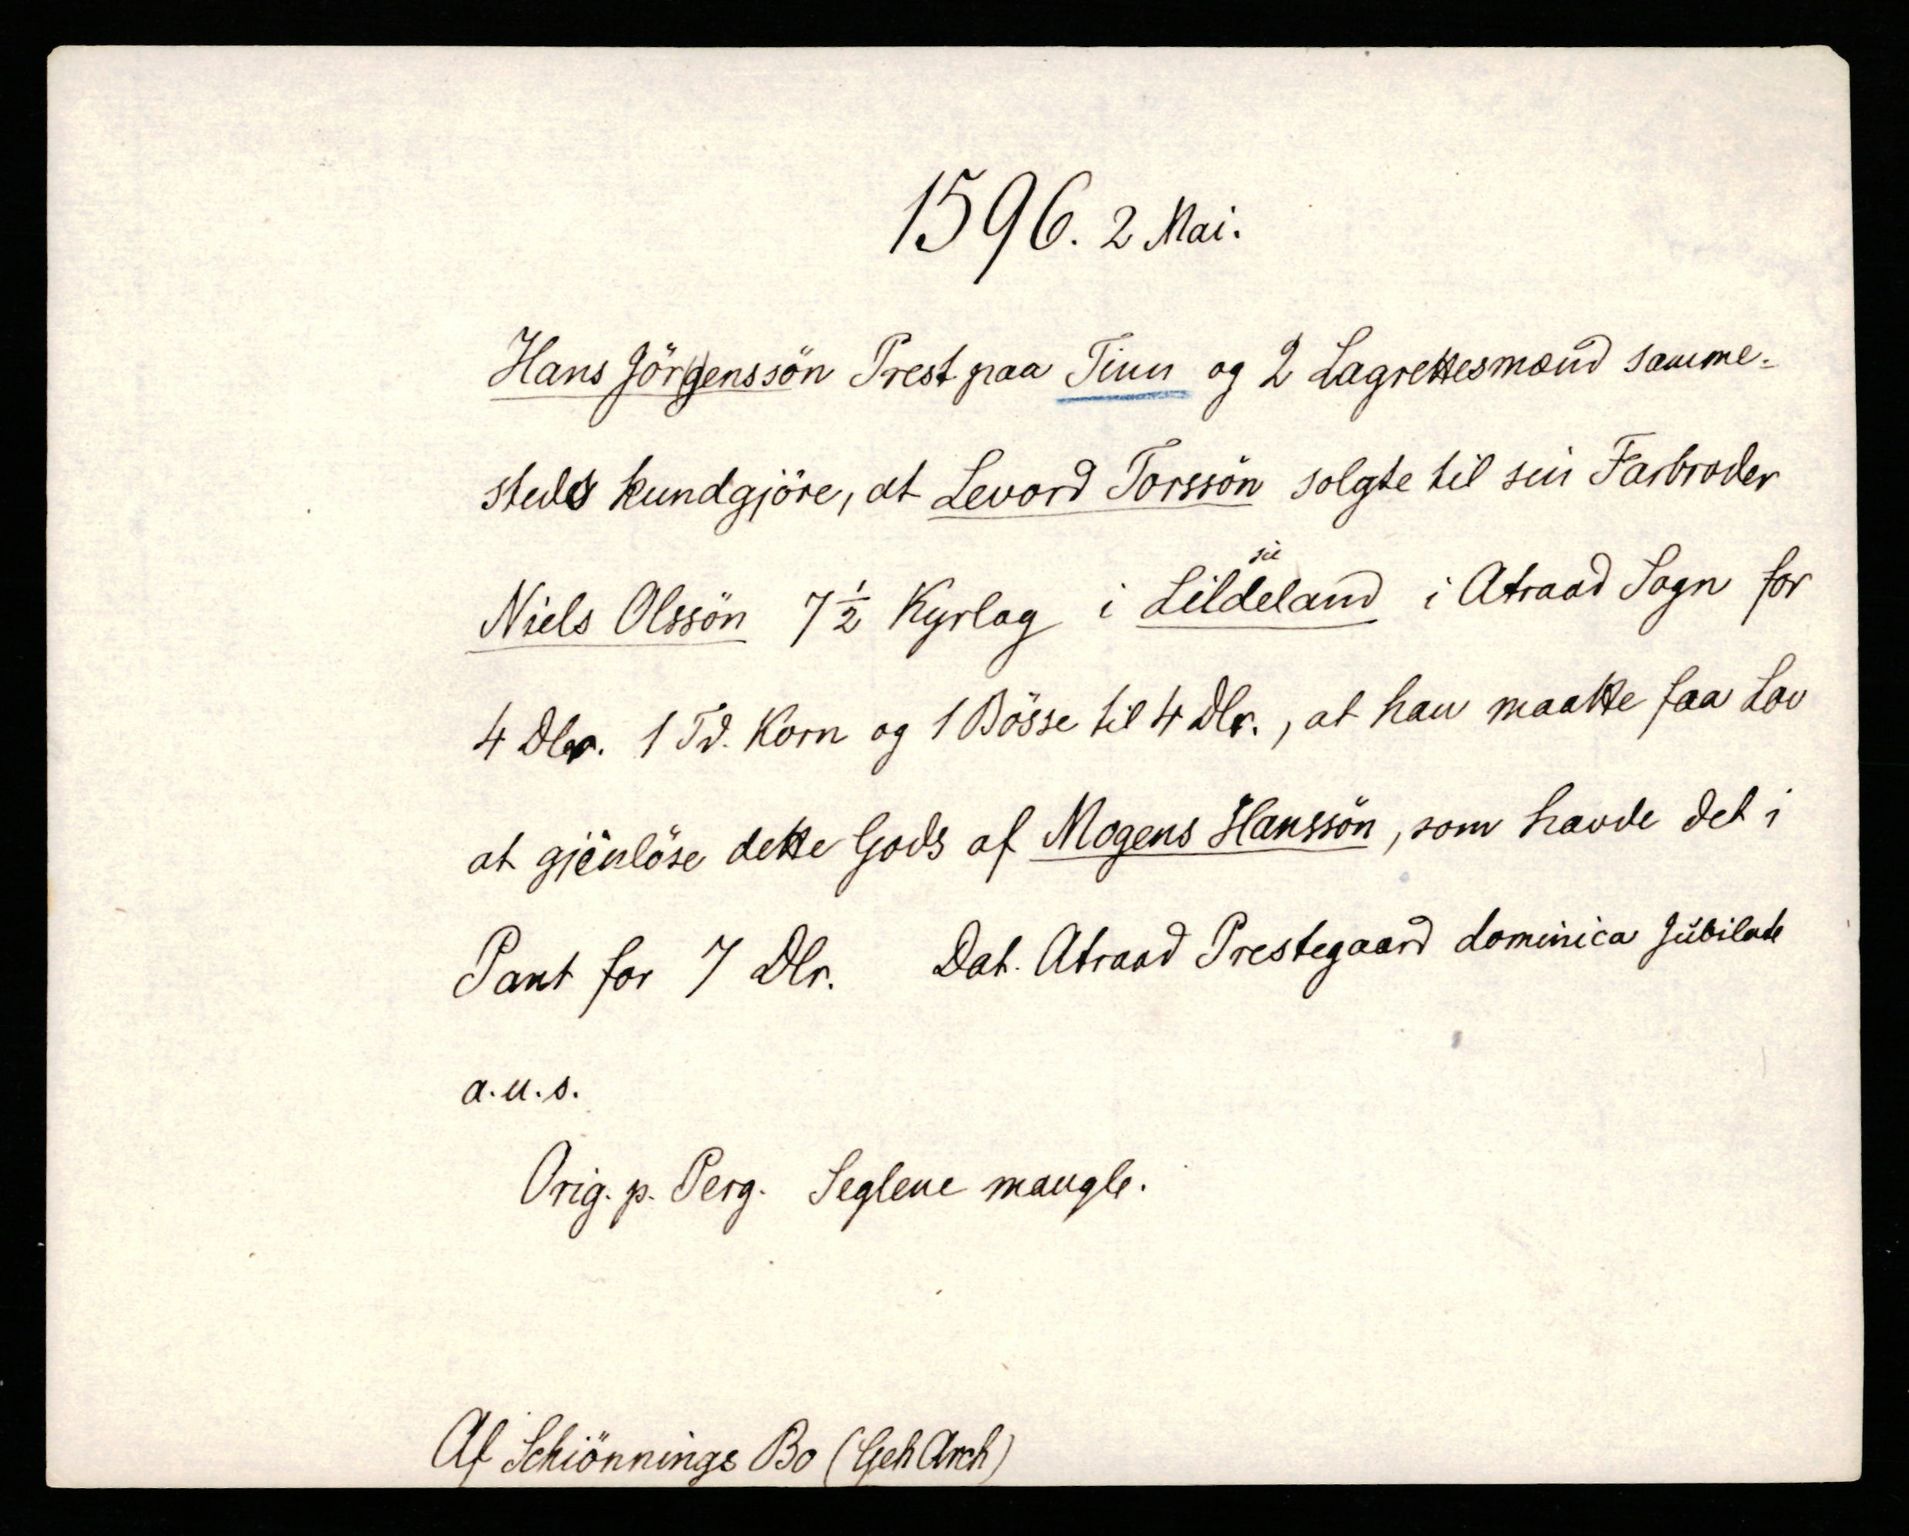 1596. 2 Mai.
Hans Jör(g)enssön Prest paa Tinn og 2 Lagrettesmænd samme-
steds kundgjöre, at Levord Torssön solgte til sin Farbroder
sic
Niels Olssön 7 1/2 Kyrlag i Lildeland i Atraad Sogn for
4 Dlr. 1 Td. Korn og 1 Bösse til 4 Dlr., at han maatte faa Lov
at gjenlöse dette Gods af Mogens Hanssön, som havde det i
Pant for 7 Dlr. Dat. Atraad Prestegaard dominica Jubilate
a.u.s.
Orig. p. Perg. Seglene mangle.
Af Schiönnings Bo (Geh Arch)